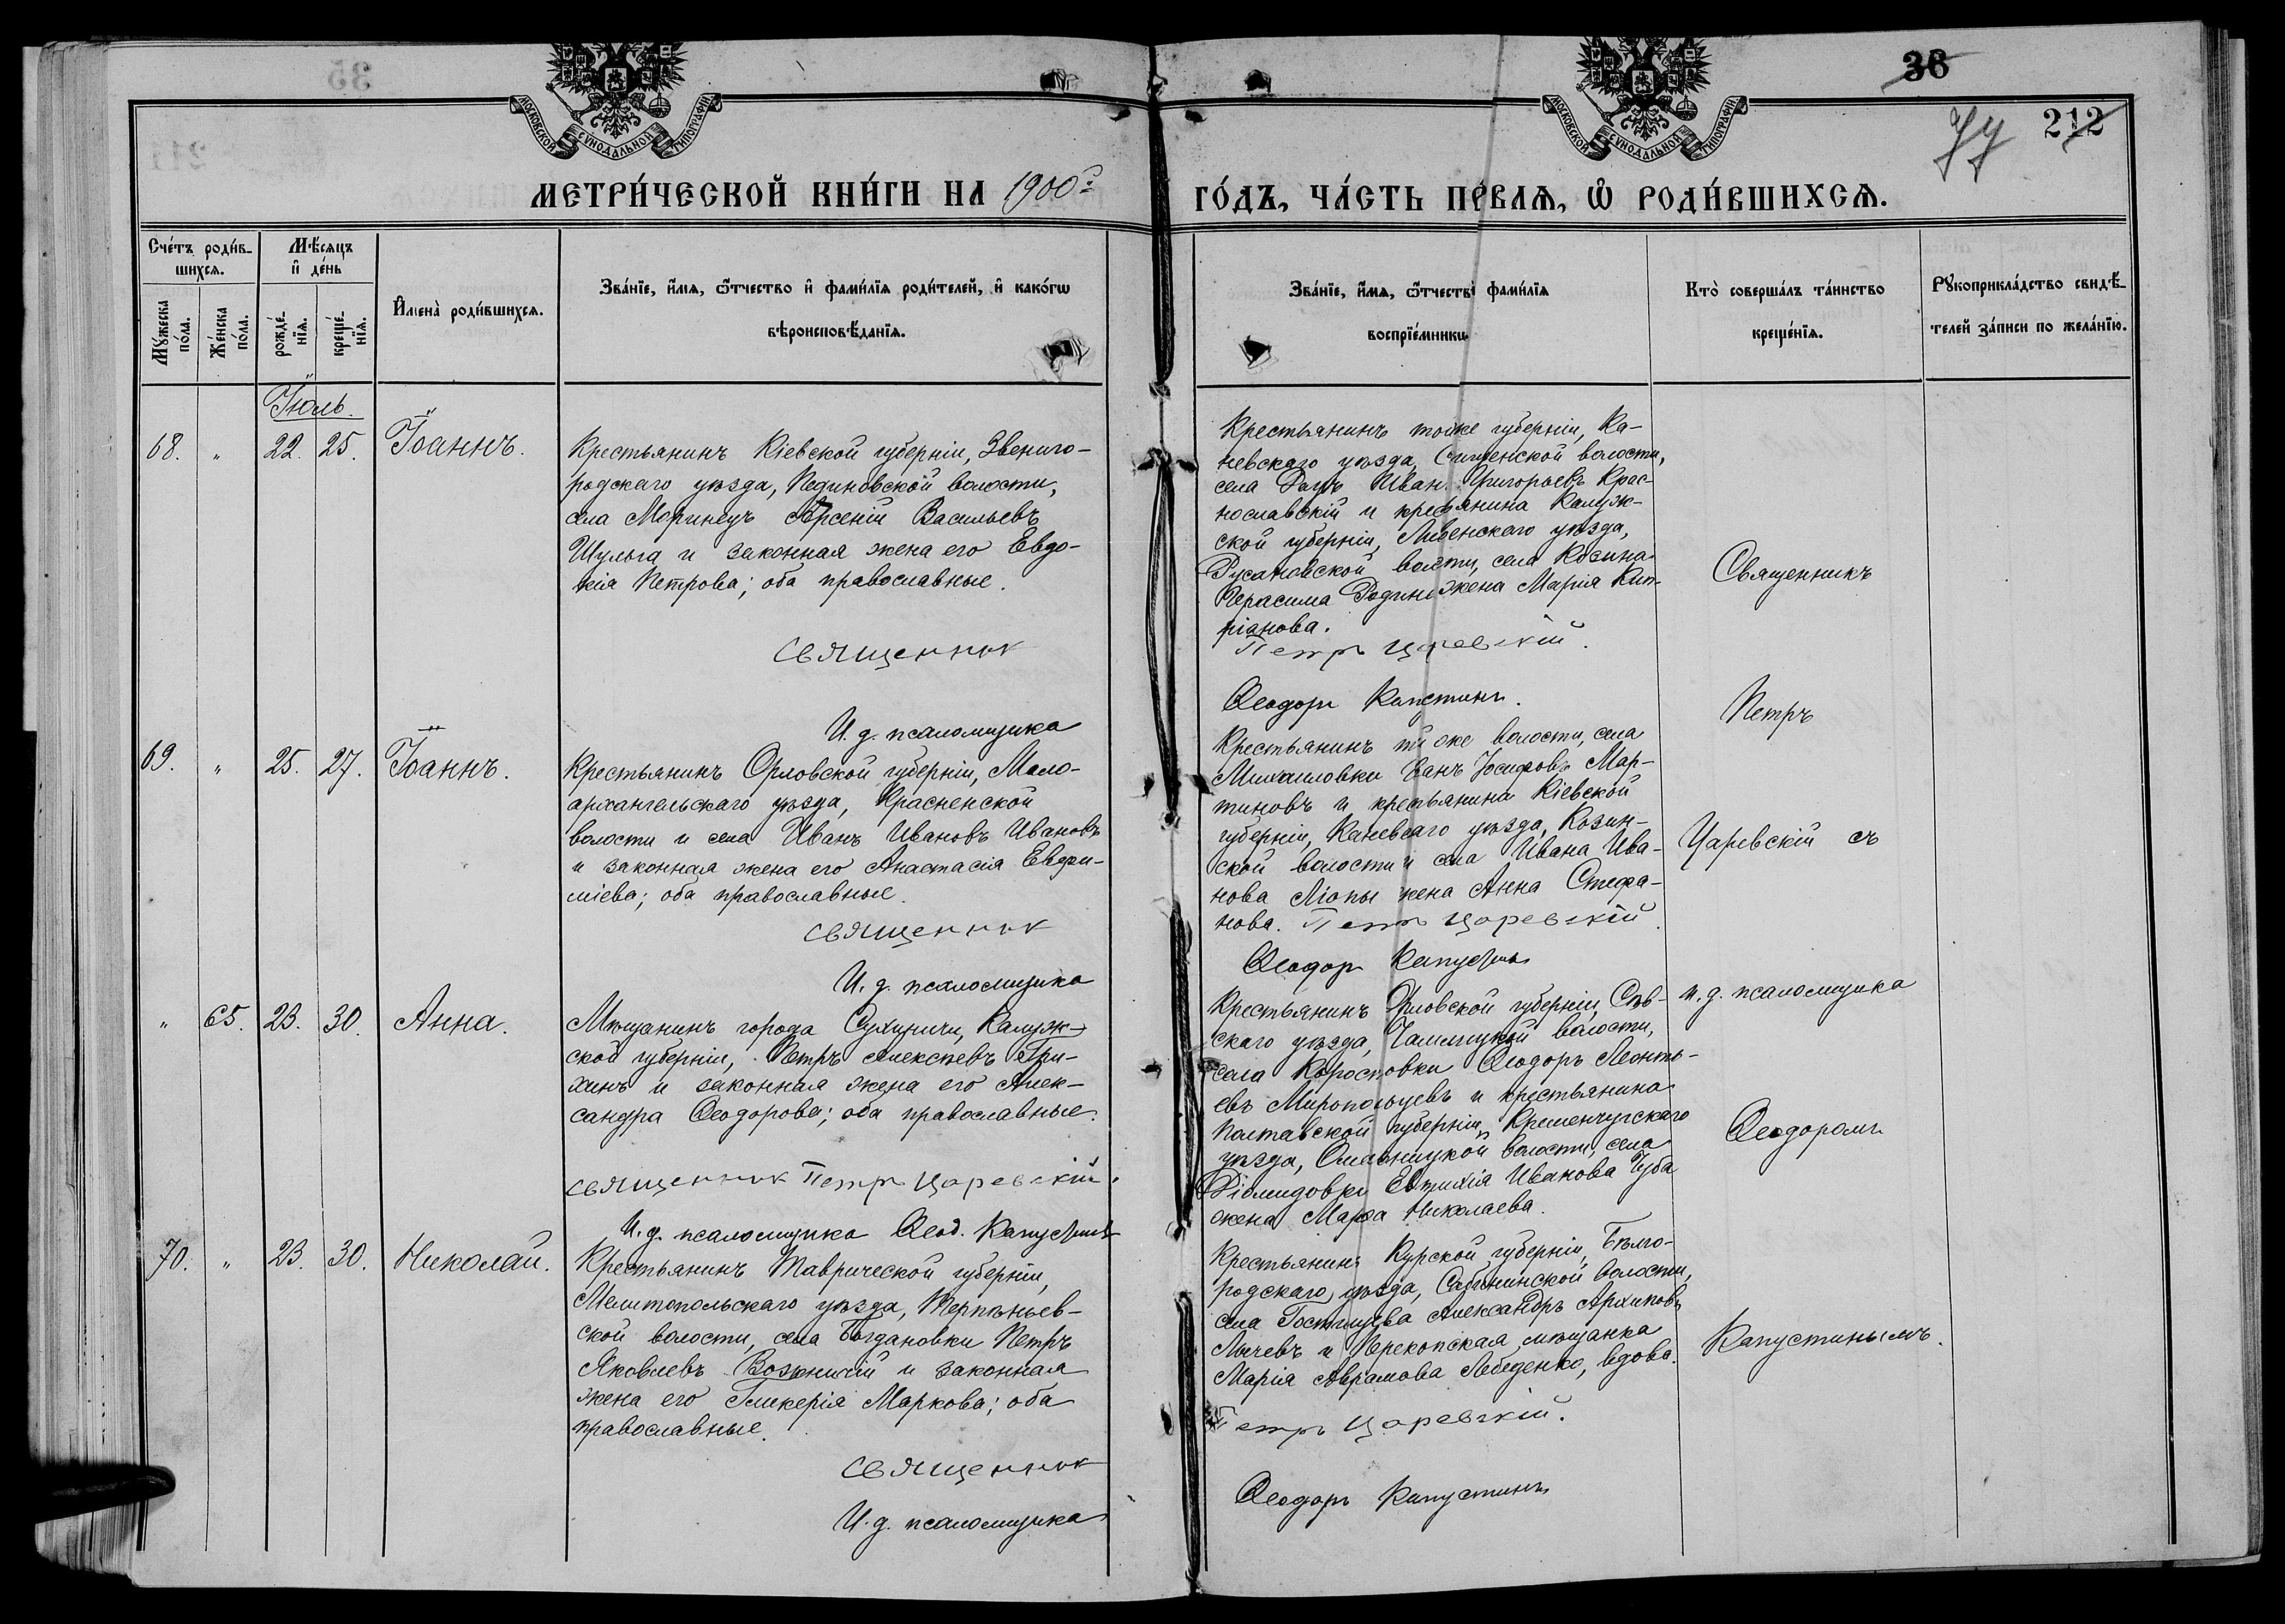 36
212
77
МОСКОВСКОЙ СѴНОДАЛЬНОЙ ТИПОГРАФІИ
МОСКОВСКОЙ СѴНОДАЛЬНОЙ ТИПОГРАФІИ
МЕТРИ́ЧЕСКОЙ КНИ́ГИ НА 1900й ГО́ДЪ, ЧА́СТЬ ПЕ́РВАѦ, Ѡ҆ РОДИ́ВШИХСѦ.
Сче́тъ роди́в-
шихсѧ.
Мѣ́сѧцъ
и҆ де́нь
Мꙋ́жеска
по́ла.
Же́нска
по́ла.
рожде́-
нїѧ.
креще́-
нїѧ.
И҆мена̀ роди́вшихсѧ.
Зва́нїе, и҆́мѧ, ѻ҆́тчество и҆ фами́лїѧ роди́телей, и҆ како́гѡ
вѣроисповѣ́данїѧ.
Зва́нїе, и҆́мѧ, ѻ҆́тчество фами́лїѧ
воспрїе́мники
Кто̀ соверша́лъ та́инство
креще́нїѧ.
Рꙋкоприкла́дство свидѣ́-
телей за́писи по жела́нїю.
Іюль.
68. " 22. 25. Іоаннъ.
Крестьянинъ Кіевской губерніи, Звениго-
родскаго уѣзда, Пединовской волости,
села Моринецъ Арсеній Васильевъ
Шульга и законная жена его Евдо-
кія Петрова; оба православные.
священник
И. д. псаломщика
Крестьянинъ тойже губерніи, Ка-
невскаго уѣзда, волости,
села Иван Григорьевъ Крас-
нославскій и крестьянина Калуж-
ской губерніи, Ливенскаго уѣзда,
Русановской волости, села Козина
Герасима Родина жена Марія Кип-
ріанова.
Петръ Царевскій.
Ѳеодоръ Капустинъ.
69. " 25. 27. Іоаннъ.
Крестьянинъ Орловской губерніи, Мало-
архангельскаго уѣзда, Красненской
волости и села Иванъ Ивановъ Ивановъ
и законная жена его Анастасія Евфи-
міева; оба православные.
священник
И. д. псаломщика
Крестьянинъ той же волости, села
Михаиловки Іосифовъ Мар-
тиновъ и крестьянина Кіевской
губерніи, Каневскаго уѣзда, Козин-
ской волости и села Ивана Ива-
нова жена Анна Стефа-
нова. Петръ Царевскій.
Ѳеодоръ Капустинъ
" 65. 23. 30. Анна.
Мѣщанинъ города Сухиничи, Калуж-
ской губерніи, Петръ Алексѣевъ Гри-
хинъ и законная жена его Алек-
сандра Ѳеодорова; оба православные.
священник Петръ Царевскій.
И. д. псаломщика Ѳеод. Капустинъ
Крестьянинъ Орловской губерніи, Сѣв-
скаго уѣзда, волости,
села Ѳеодоръ Леонть-
евъ Миропольцевъ и крестьянина
Полтавской губерніи, Кременчугскаго
уѣзда, волости, села
Евтихія Иванова Губа
жена Марѳа Николаева.
70. " 23. 30. Николай.
Крестьянинъ Таврической губерніи,
Мелитопольскаго уѣзда, Терпѣньев-
ской волости, села Богдановки Петръ
Яковлевъ и законная
жена его Гликерія Маркова; оба
православные.
священник
И. д. псаломщика
Крестьянинъ Курской губерніи, Бѣлго-
родскаго уѣзда, Сабынинской волости,
села Гостищева Александръ Архиповъ
Лычевъ и Перекопская мѣщанка
Марія Аврамова Лебеденко, вдова.
Петръ Царевскій.
Ѳеодоръ Капустинъ
Священникъ
Петръ
Царевскій съ
и. д. псаломщика
Ѳеодоромъ
Капустинымъ.